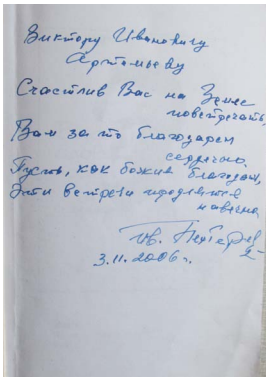 Виктору Ивановичу
Артомьеву
Счастлив Вас на Земле
повстречать,
Вам за то благодарен
сердечно.
Пусть, как божия благодать,
Эти встречи продлятся
навечно.
Ив.
3.11.2006 г.